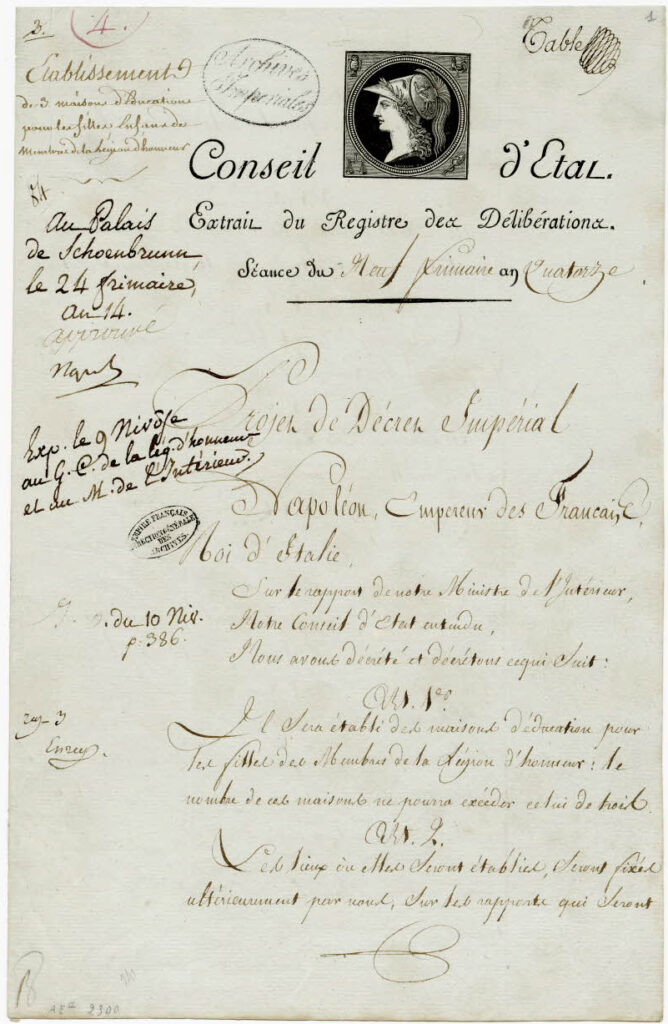 3.
4.
1
Table
Etablissement
de 3 maisons d'Education
pour les filles Enfans de
Membres de la Légion d'honneur
Archives
Impériales
Conseil d'Etat.
Extrait du Registre des Délibérations.
Séance du Neuf frimaire an Quatorze
au Palais
de Schoenbrunn
le 24 frimaire,
an 14.
approuvé
Nap
Projet de Décret Impérial
Exp. le 9 Nivôse
au G. C. de la lég. d'honneur
et au M. de l'Intérieur.
Napoléon, Empereur des Français,
Roi d'Italie,
EMPIRE FRANÇAIS
DIRECTION GÉNÉRALE
DES
ARCHIVES.
Sur le rapport de notre Ministre de l'Intérieur,
Notre Conseil d'Etat entendu,
Nous avons décrété et décrétons ce qui suit:
du 10 Niv.
p. 386.
Art. 1er.
Il sera établi des maisons d'éducation pour
les filles des Membres de la Légion d'honneur: le
nombre de ces maisons ne pourra excéder celui de trois.
Art. 2.
Les lieux où elles seront établies, seront fixés
ultérieurement par nous, sur les rapports qui seront
AE II 2300